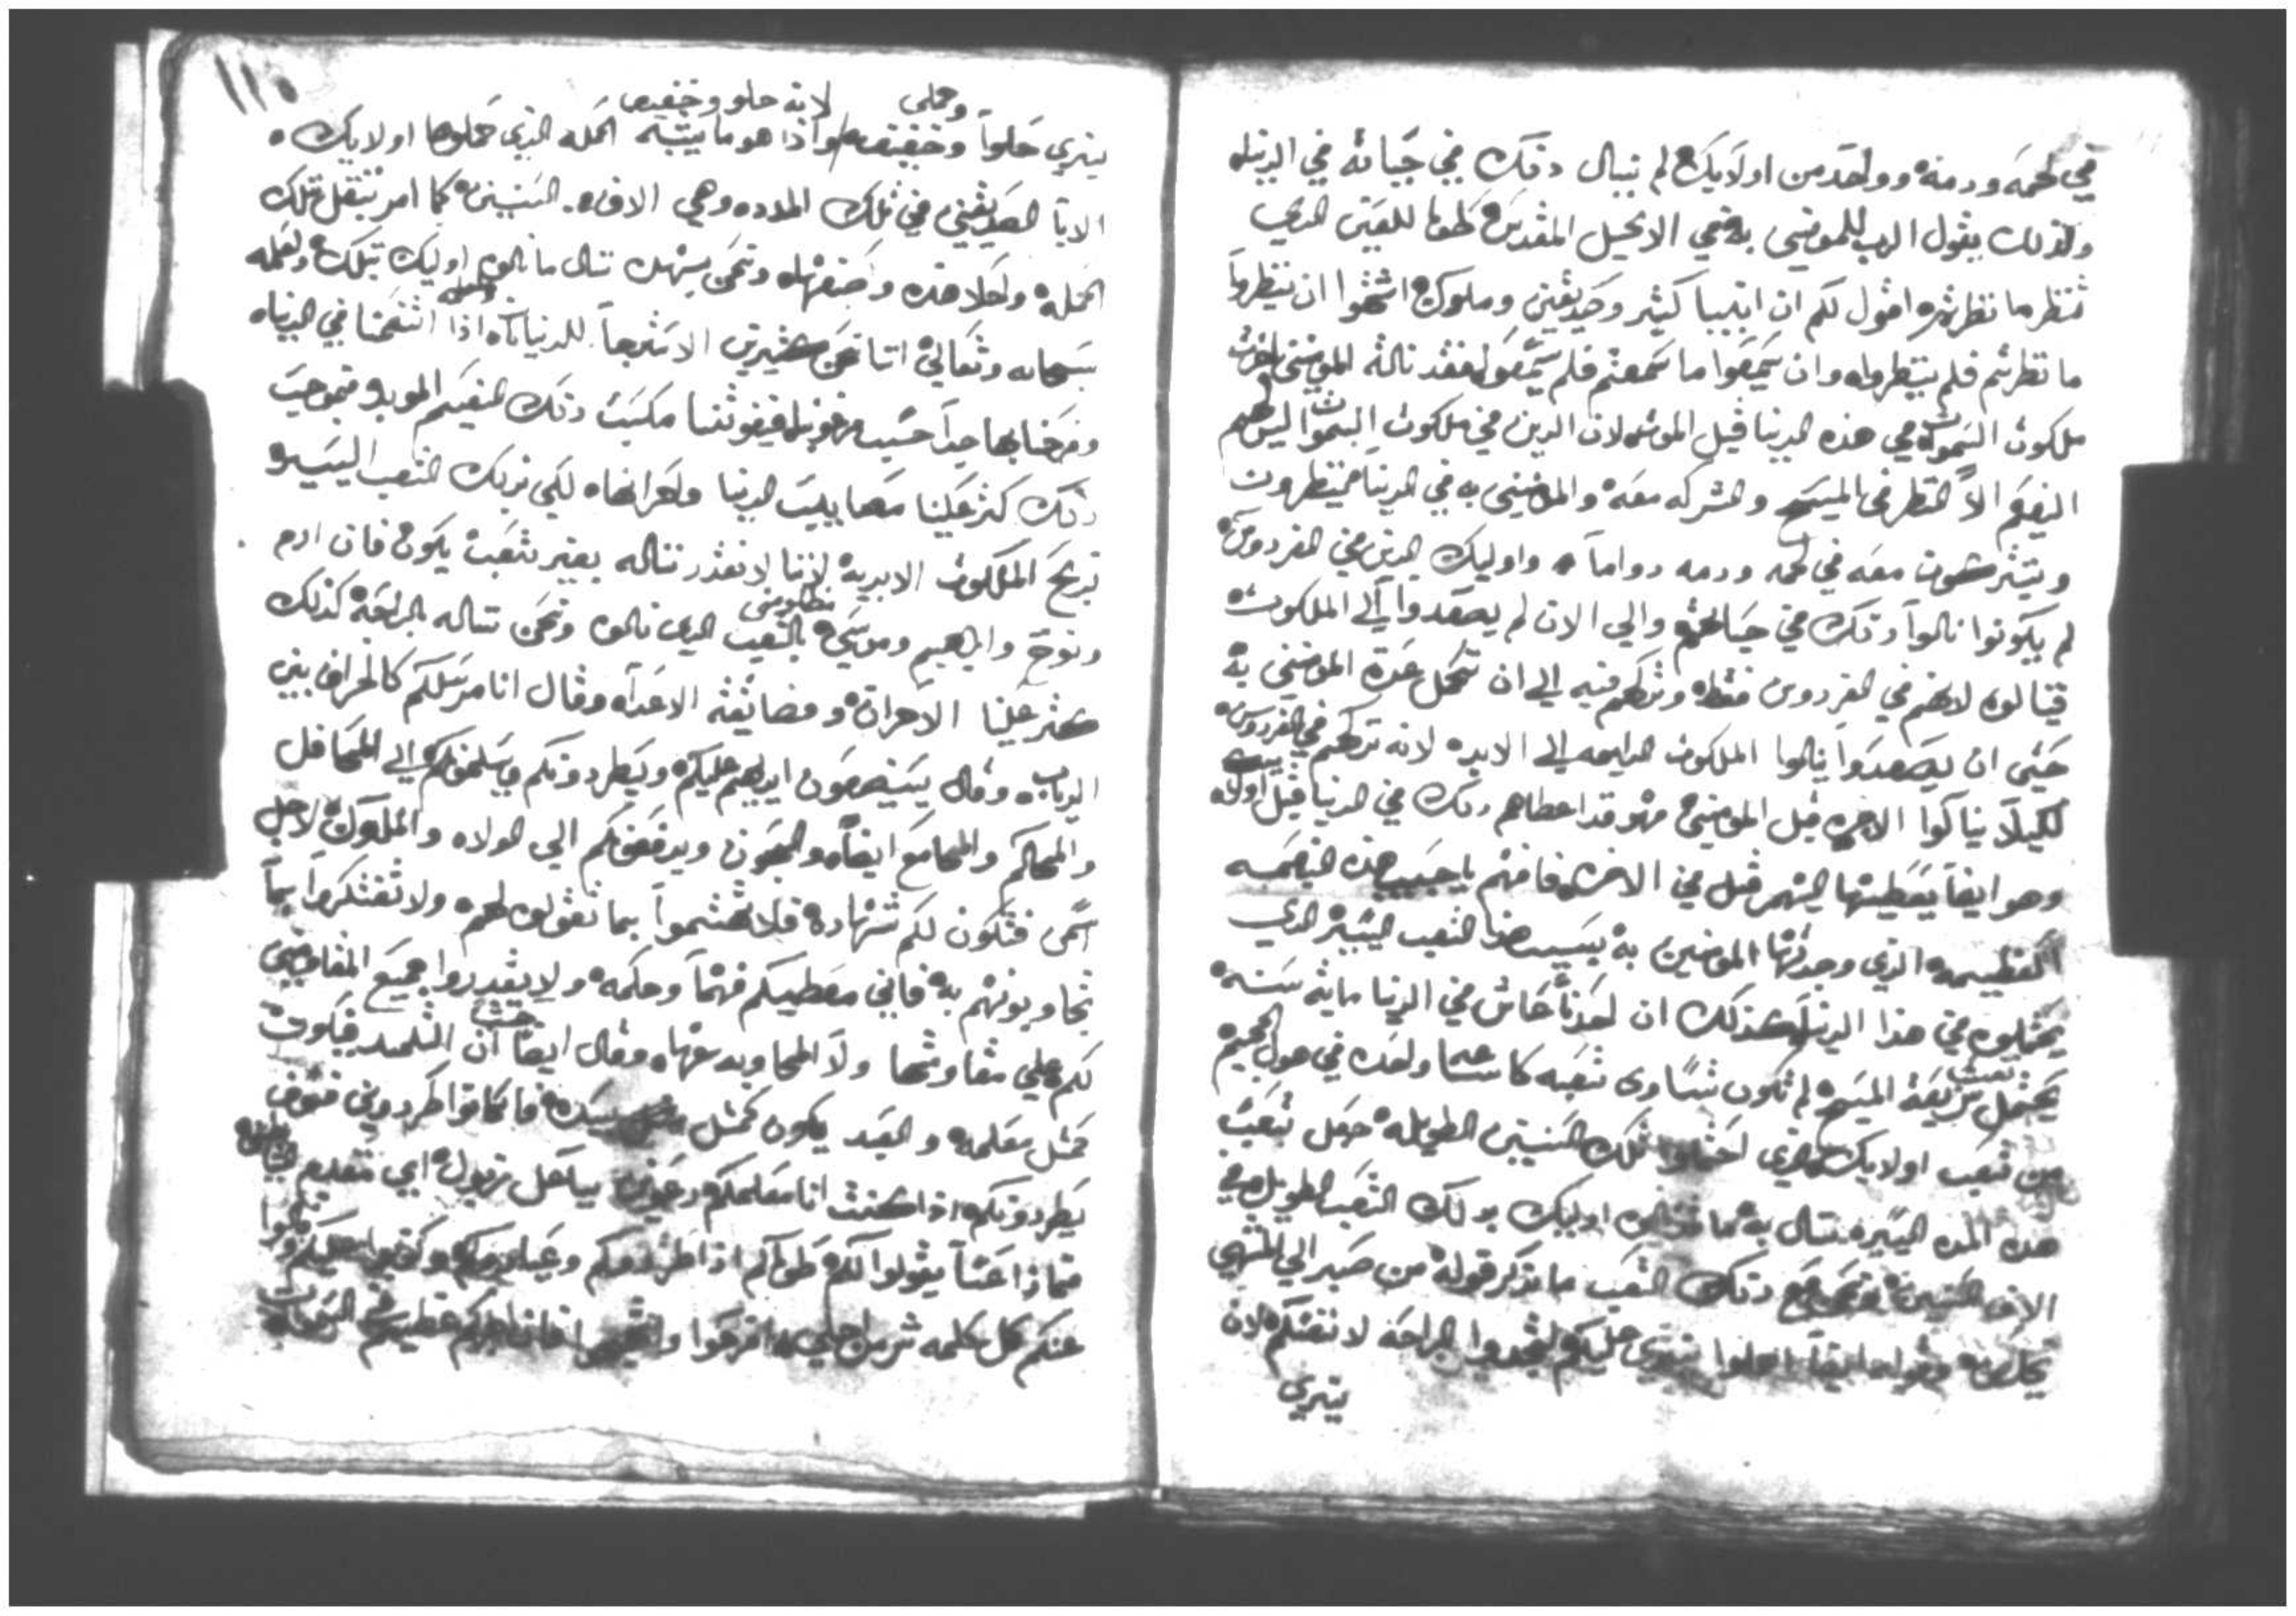 في لحمه ودمه وواحد من اولايك لم ينال دلك في حياته في الدنيا
ولذلك يقول الرب للمومنين به في الانجيل المقدس طوبا للعين الدي
تنظر ما نظرتم اقول لكم ان انبيا كثير وصديقين وملوك اشتهوا ان ينظروا
ما نظرتم فلم ينظروا وان يسمعوا ما سمعتم فلم يسمعوا فقد نالة المومنين
ملكوت السموات في هذه الدنيا قبل الموت لان الدين في ملكوت السموات ليس لهم
النعيم الا النظر في المسيح والشركه معه والمومنين به في الدنيا ينظرون
ويشتركون معه في لحمه ودمه دواما واوليك الدين في الفردوس
لم يكونوا نالوا دلك في حياتهم والي الان لم يصعدوا الي الملكوت
فينالوه لانهم في الفردوس فقط وتركهم فيه الي ان تكمل عدة المومنين به
حتي ان يصعدوا ينالوا الملكوت الدايمه الي الابد لانه تركهم في الفردوس
لكيلا ينالوا الاخره قبل المومنين فهو قد اعطاهم دلك في الدنيا قبل اوليك
وهو ايضا يعطيها لهم قبل في الاخره فافهم يا حبيب هذه النعمه
العظيمه الذي وجدتها المومنين به بسبب هذا التعب اليسير الدي
يحتملوه في هذا الدنيا كذلك ان احدنا عاش في الدنيا مايه سنه
يحتمل شريعة المسيح لم تكون تساوي تعبه كله ساعه واحده في هول الجحيم
من تعب اولايك الذي احتملوا تلك السنين الطويله جعل تعب
هده المده اليسيره ننال به ما نالوه اوليك بدلك التعب الطويل في
الاف السنين ونحن مع دلك التعب ما نذكر قوله من صبر الي المنتهي
يخلص وقوله ايضا احملوا نيري عليكم لتجدوا الراحه لانفسكم لان
نيري
١١٥
وحملي لانه حلو وخفيف
نيري حلوا وخفيف واذا هو ما يشبه الحمله الذي حملوها اولايك
الابا الصديقين في تلك المده وهي الاف السنين كما امر بثقل تلك
الحمله واحلا هذه وخففها ونحن بهده ننال ما نالوه اوليك بتلك ولعمله
سبحانه وتعالي اننا نحن كثيرين الاسترجا للدنيا اذا اتنعمنا في الدنيا
وفرحنا بها جدا فيفوتنا مكسب دلك النعيم الموبد فبموجب
دلك كثر علينا مصايب الدنيا واحزانها لكي بدلك التعب اليسير
نربح الملكوت الابديه لاننا لا نقدر نناله بغير تعب يكون فان ادم
ونوح وابراهيم وموسي بالتعب الدي نالوه ونحن نناله بالراحة كذلك
كثر علينا الاحزان ومضايقة الاعدا وقال انا مرسلكم كالخراف بين
الدياب وقال يضعون ايديهم عليكم ويطردونكم ويسلمونكم الي المحافل
والمحاكم والمجامع ايضا والسجون ويدفعونكم الي الولاه والملوك لاجل
اسمي فتكون لكم شهادة فلا تهتموا بما تقولوه لهم ولا تفتكروا بما
تجاوبونهم به فاني معطيكم فهما وحكمه ولا يقدروا جميع المقاومين
لكم علي مقاومتها ولا المجاوبه عنها وقال ايضا ان التلميد يكون
كمثل معلمه والعبد يكون كمثل سيده فان كانوا طردوني فسوف
يطردونكم اذا كنت انا معلمكم دعوني بعل زبول اي مقدم الشياطين
فماذا عسا يقولوا لكم طوباكم اذا طردوكم وعيروكم وكذبوا عليكم وقالوا
عنكم كل كلمه شر من اجلي افرحوا وابتهجوا فان اجركم عظيم في السموات